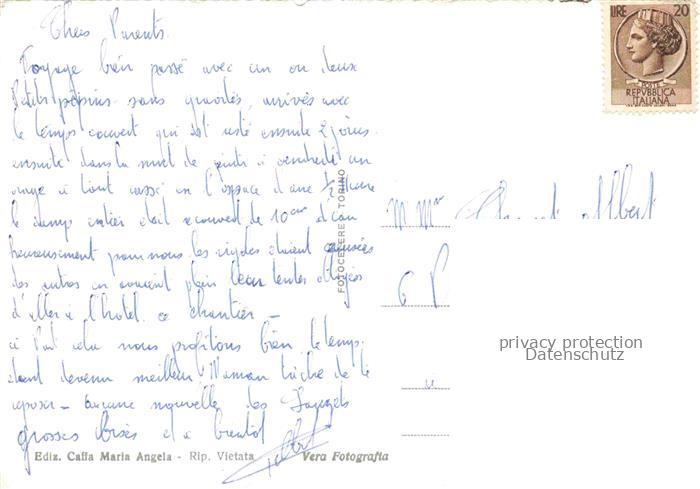 Chers Parents.
Voyage bien passé avec un ou deux
Petits pépins sans gravités, arrivés avec
le temps couvert qui est resté ensuite 2 jours.
ensuite dans la nuit de jeudi à vendredi un
orage à tout cassé en l'espace d'une 1/2 heure
le camp entier était recouvert de 10 cm d'eau
heureusement pour nous les rigoles étaient creusées
les autres en avaient plein leur tentes obligés
d'aller a l'hotel ce chantier -
à Part cela nous profitons bien le temps
étant devenu meilleur Maman tâche de te
reposer - aucune nouvelle des
grosses Bises et a bientôt
Ediz. Caffa Maria Angela - Rip. Vietata
Vera Fotografia
FOTOCELERE TORINO
LIRE 20
POSTE
REPVBBLICA
ITALIANA
M Mme Albert
privacy protection
Datenschutz